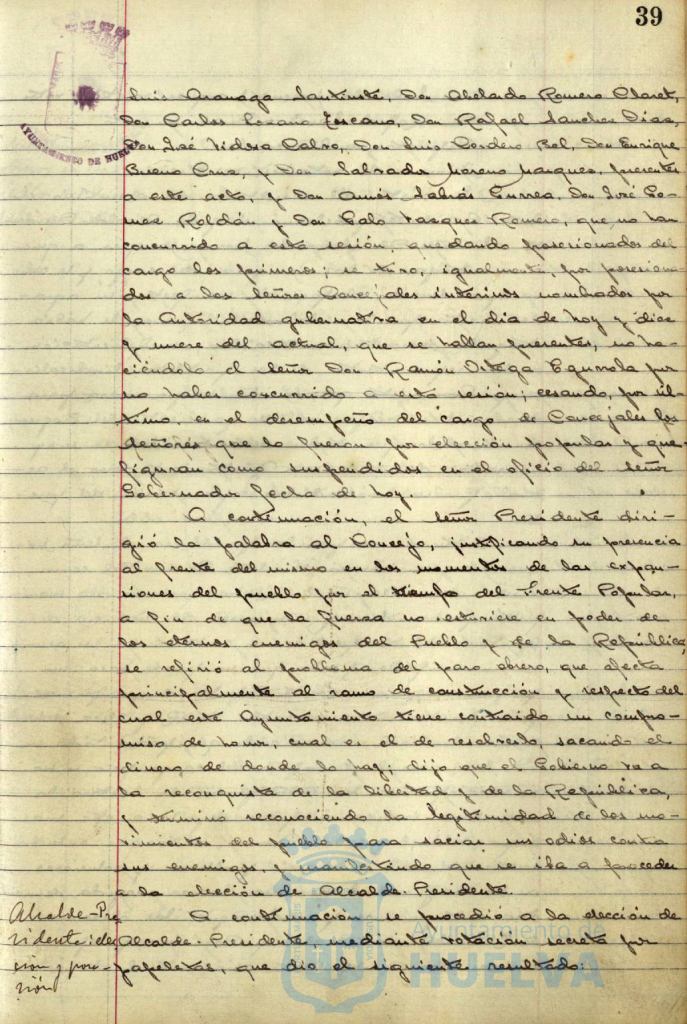 39
AYUNTAMIENTO DE HUELVA
Luis Aranaga Santiuste, Don Abelardo Romero Claret,
Don Carlos Lozano Toscano, Don Rafael Sanchez Diaz,
Don José Vidosa Calvo, Don Luis Cordero Bel, Don Enrique
Bueno Cruz, y Don Salvador Moreno Marquez, presentes
a este acto, y Don Amós Sabrás Gurrea, Don José Go-
mez Roldán y Don Galo Vazquez Romero, que no han
concurrido a esta sesión, quedando posesionados del
cargo los primeros; se tuvo, igualmente, por posesiona-
dos a los señores Concejales interinos nombrados por
la Autoridad gubernativa en el dia de hoy y diez
y nueve del actual, que se hallan presentes, no ha-
ciéndolo el señor Don Ramón Ortega por
no haber concurrido a esta sesión; cesando, por úl-
timo, en el desempeño del cargo de Concejales los
señores que lo fueron por elección popular y que
figuran como suspendidos en el oficio del señor
Gobernador fecha de hoy.
A continuación, el señor Presidente diri-
gió la palabra al Concejo, justificando su presencia
al frente del mismo en los momentos de las expan-
siones del pueblo por el triunfo del Frente Popular,
a fin de que la fuerza no estuviese en poder de
los eternos enemigos del Pueblo y de la República;
se refirió al problema del paro obrero, que afecta
principalmente al ramo de construcción y respecto del
cual este Ayuntamiento tiene contraido un compro-
miso de honor, cual es el de resolverlo, sacando el
dinero de donde lo hay; dijo que el Gobierno va a
la reconquista de la libertad y de la República,
y terminó reconociendo la legitimidad de los mo-
vimientos del pueblo para saciar sus odios contra
sus enemigos, y manifestando que se iba a proceder
a la elección de Alcalde-Presidente.
Alcalde-Pre
sidente: elec
ción y pose-
sión
A continuación se procedió a la elección de
Alcalde-Presidente, mediante votación secreta por
papeletas, que dio el siguiente resultado:
Ayuntamiento de
HUELVA